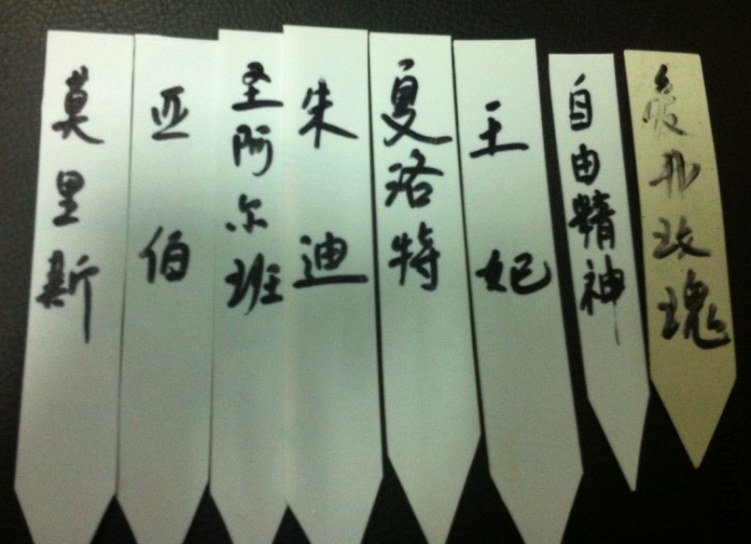 莫里斯
亚伯
圣阿尔班
朱迪
夏洛特
王妃
自由精神
玫瑰